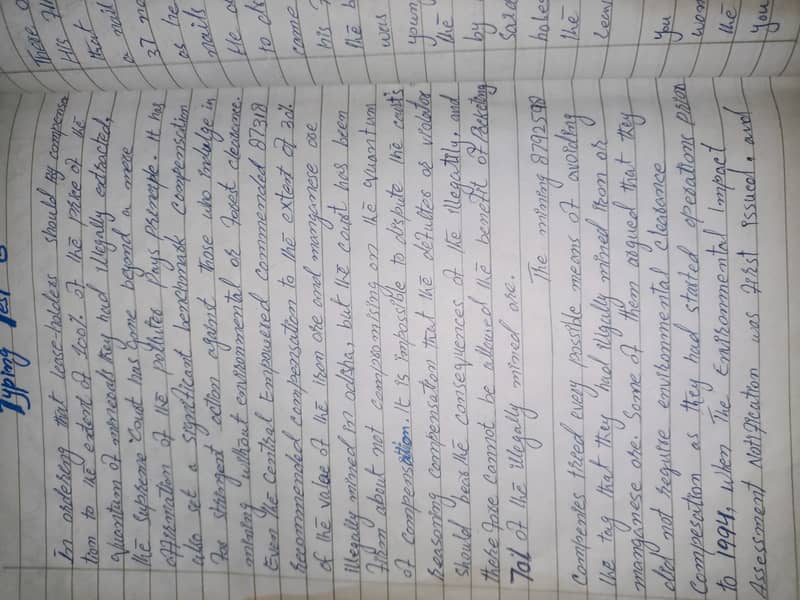 Typing Test
In ordering that lease-holders should pay compensa
tion to the extent of 100% of the price of the
quantum of minerals they had illegally extracted,
the supreme court has gone beyond a mere
affirmation of the polluter pays principe. It has
also set a significant benchmark compensation
for stringent action against those who indulge in
mining without environmental or forest clearance.
Even the Central Empowered commended 87318
Recommended compensation to the extent of 30%
of the value of the iron ore and manganese ore
illegally mined in odisha, but the court has been
firm about not compromising on the quantum
of compensation. It is impossible to dispute the court's
reasoning compensation that the defulter or violator
should bear the consequences of the illegality, and
therefore cannot be allowed the benefit of
70% of the illegally mined ore.
The mining 8792590
companies tried every possible means of avoiding
the tag that they had illegally mined iron or
manganese ore. Some of them argued that they
did not require environmental clearance
Compesation as they had started operations prior
to 1994, when The Environmental Impact
Assessment Notification was first issued, and
There
His
that
a nail
37
as he
nails
He
to
come
his
the
was
young
the
by
Said
holes
the
you
the
you